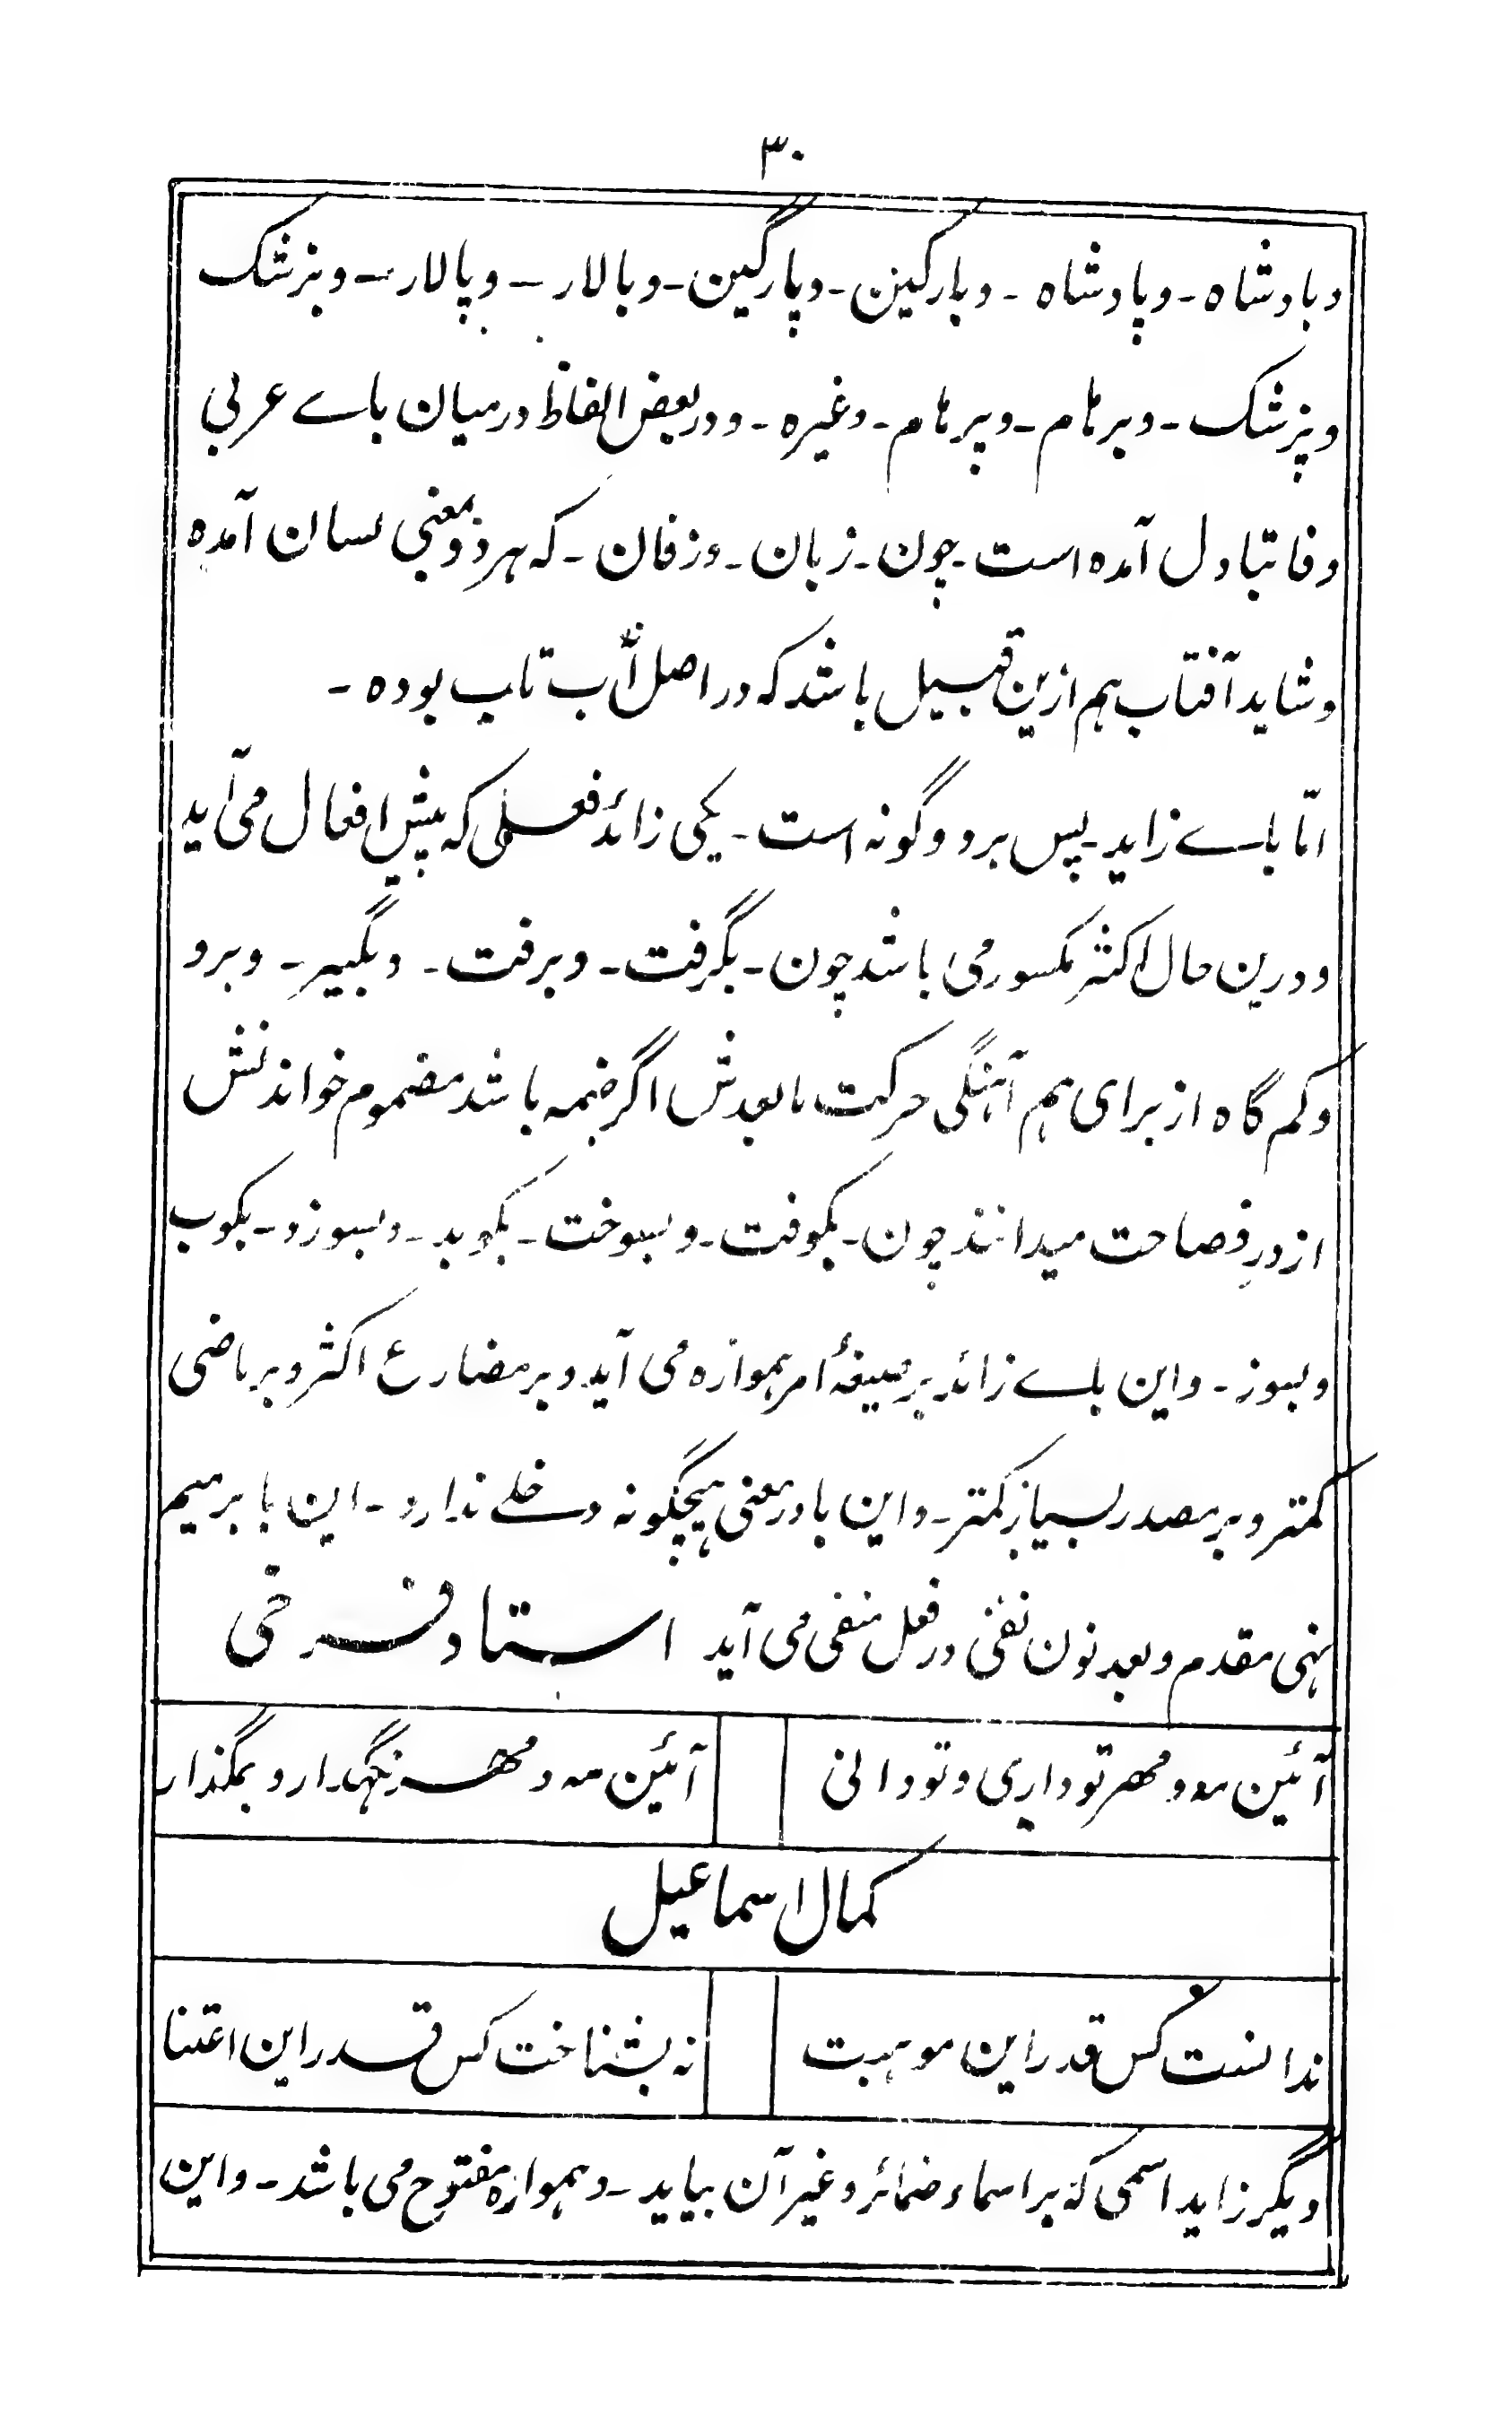 ۳۰
وبادشاه - وپادشاه - وبارکین - وپارگین - وبالار - وپالار - وبزشک
وپزشک - وبرهام - وپرهام - وغیره - ودر بعض الفاظ درمیان باے عربی
وفا تبادل آمده است چون - زبان - وزفان - که هر دو بمعنی لسان آمده
وشاید آفتاب هم ازین قبیل باشد که در اصل آب تاب بوده -
امّا باے زاید - پس بر دو گونه است - یکی زائد فعلی که پیش افعال می آید
ودرین حال اکثر مکسور می باشد چون - بگرفت - وبرفت - وبگیر - وبرو
وکم گاه از برای هم آهنگی حرکت مابعدش اگر ضمه باشد مضموم خواندنش
از درِ فصاحت میدانند چون - بکوفت - وبسوخت - بکوبد - وبسوزد - بکوب
وبسوز - واین باے زائد بر صیغهٔ امر همواره می آید و بر مضارع اکثر و بر ماضی
کمتر و بر مصدر بسیار کمتر - واین با در معنی هیچگونه دخلے ندارد - این با بر میم
نهی مقدم و بعد نون نفی در فعل منفی می آید استاد فرخی
آئین مه و مهر تو داری و تو دانی آئین مه و مهر نگهدار و بمگذار
کمال اسماعیل
ندانست کس قدر این موهبت نه بشناخت کس قدر این اعتنا
دیگر زاید اسمی که بر اسماء ضمائر و غیر آن بیاید - و همواره مفتوح می باشد - واین